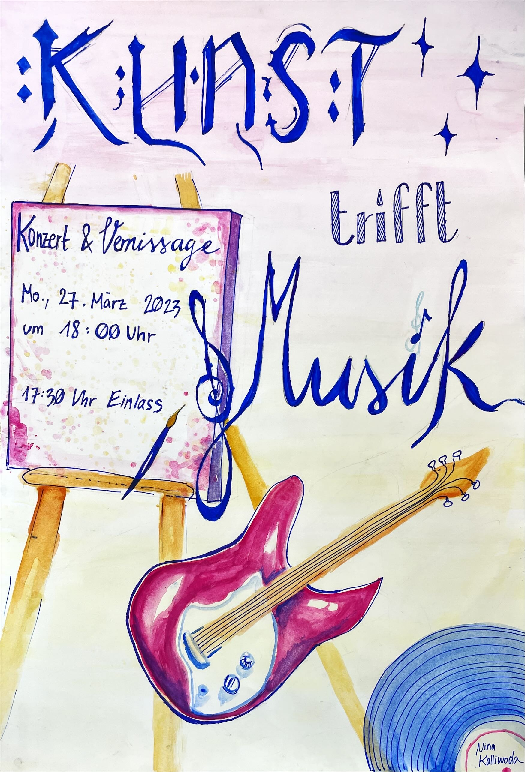 KUNST
trifft
Musik
Konzert & Vernissage
Mo., 27. März 2023
um 18:00 Uhr
17:30 Uhr Einlass
Nina
Kalliwoda